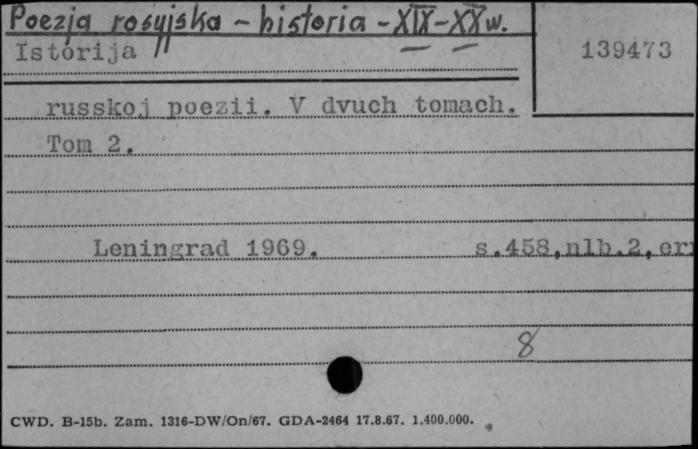 Poezja rosyjska - historia - XIX-XX w.
Istorija
139473
russkoj poezii. V dvuch tomach.
Tom 2.
Leningrad 1969. s.458,nlb.2,err
8
CWD. B-15b. Zam. 1316-DW/On/67. GDA-2464 17.8.67. 1.400.000.